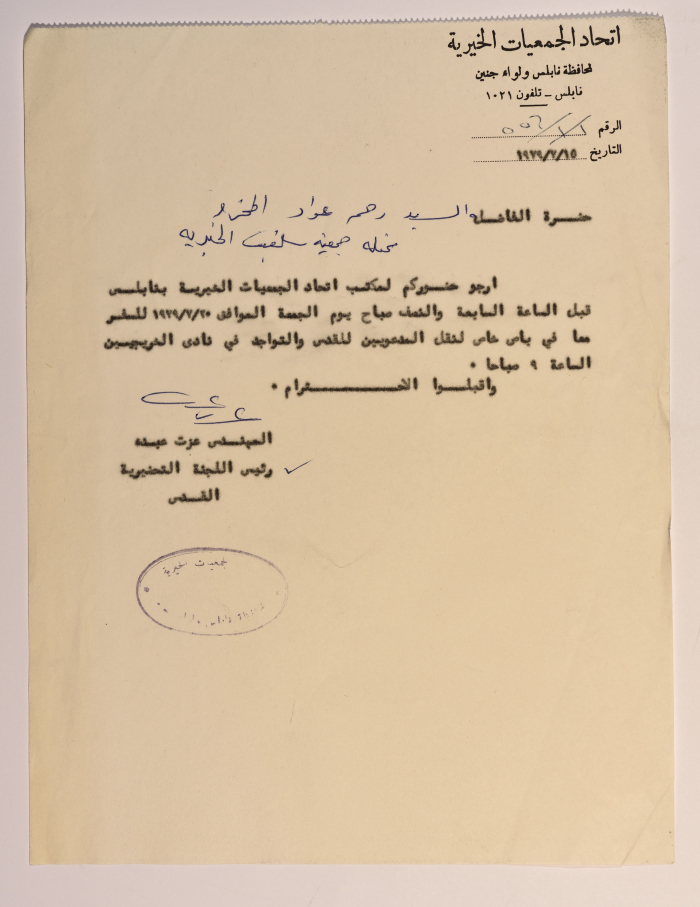 اتحاد الجمعيات الخيرية
لمحافظة نابلس ولواء جنين
نابلس - تلفون ١٠٢١
الرقم
التاريخ ١٩٧٩/٧/١٥
حضرة الفاضلة السيد رحمه عواد
ممثلة جمعية سلفيت الخيرية
ارجو حضوركم لمكتب اتحاد الجمعيات الخيرية بنابلس
قبل الساعة السابعة والنصف صباح يوم الجمعة الموافق ١٩٧٩/٧/٢٠ للسفر
معا في باص خاص لنقل المدعوين للقدس والتواجد في نادى الخريجين
الساعة ٩ صباحا ٠
واقبلوا الاحترام ٠
المهندس عزت عبده
رئيس اللجنة التحضيرية
القدس
الجمعيات الخيرية